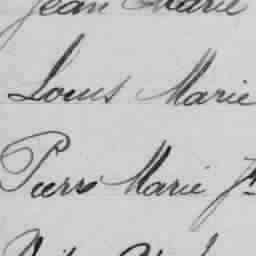 Jean Marie
Louis Marie
Pierre Marie